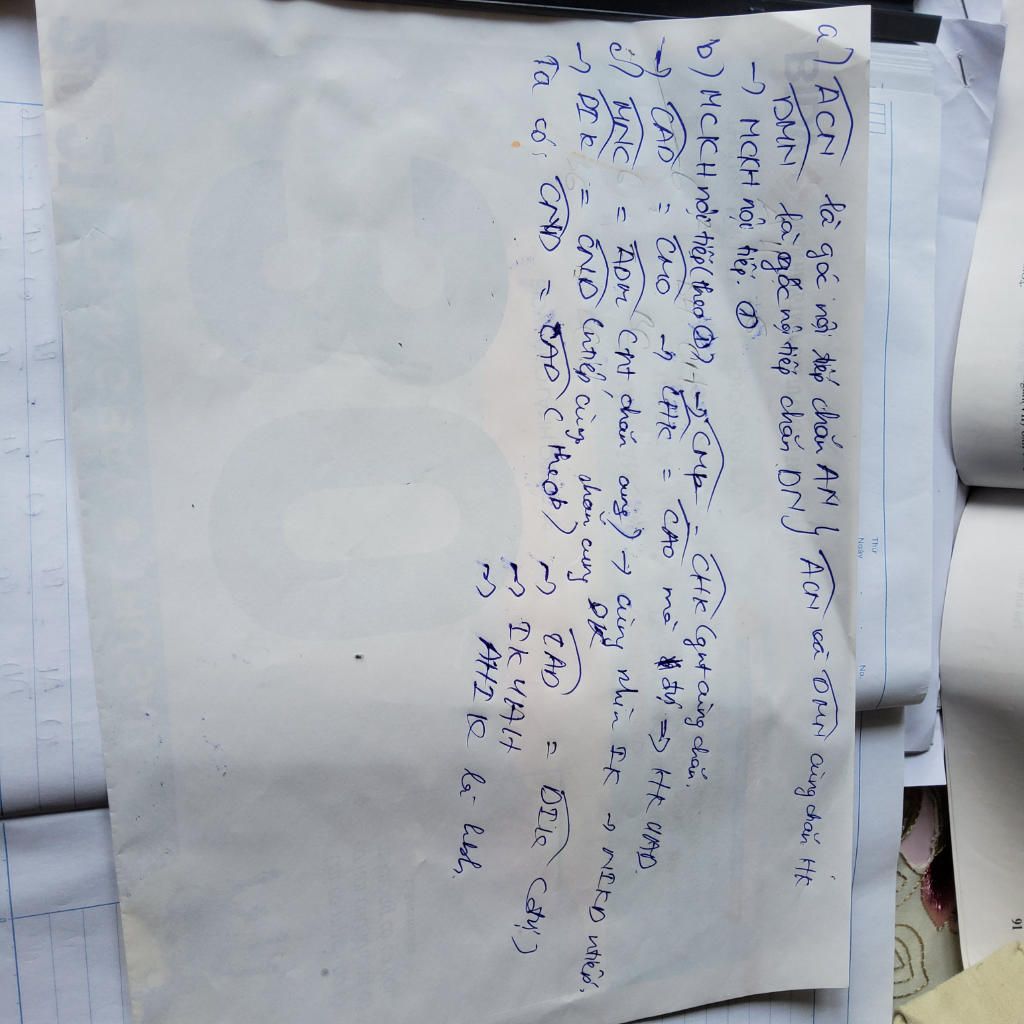 a) ACN là góc nội tiếp chắn AN } ACN và DMN cùng chắn HK
DMN là góc nội tiếp chắn DN
→ MCKH nội tiếp. ①
b) MCKH nội tiếp (theo ①) → CMK = CHK (gnt cùng chắn.
→ CAD = CMD → CHK = CAD mà đvị => HK // AD.
c) MNC = ADM (gnt chắn cung) → cùng nhìn IK → NIKD ntiếp.
→ DIK = CND (ntiếp cùng chắn cung DK
Ta có: CND = CAD (theo b) → CAD = DIK (đvị)
→ IK // AH
→ AHIK là hbh.
Thứ
Ngày
No.
91